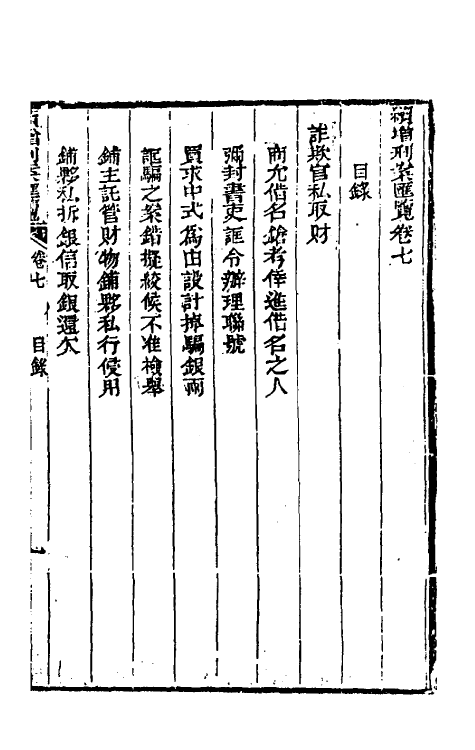 續增刑案匯覽卷七
目錄
詐欺官私取財
商允借名鎗考倖進借名之人
彌封書吏誆令辦理聯號
買求中式為由設計撞騙銀兩
誆騙之案錯擬絞候不准檢舉
鋪主託管財物鋪夥私行使用
鋪夥私拆銀信取銀還欠
卷七
目錄
一